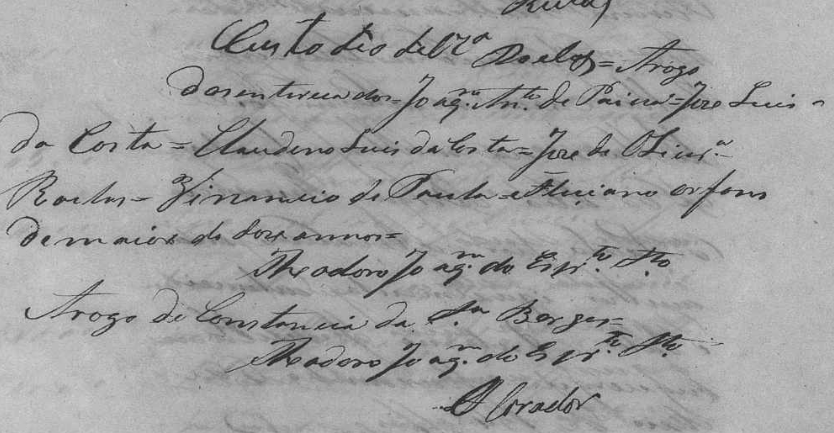 Custodio de Olr.ª Roelos = Arogo
dos enterecados = Joaq.m An.to de Paiva = Joze Luis
da Costa = Claudeno Luis da Costa = Joze de Oliur.ª
Roelos = Vinancio de Paula = e Feliciano orfons
de maior de doze annos =
Theadoro Joaq.m do Espr.to S.to
Arogo de Constancia da S.ª Borges =
Theadoro Joaq.m do Espr.to S.to
O Corador